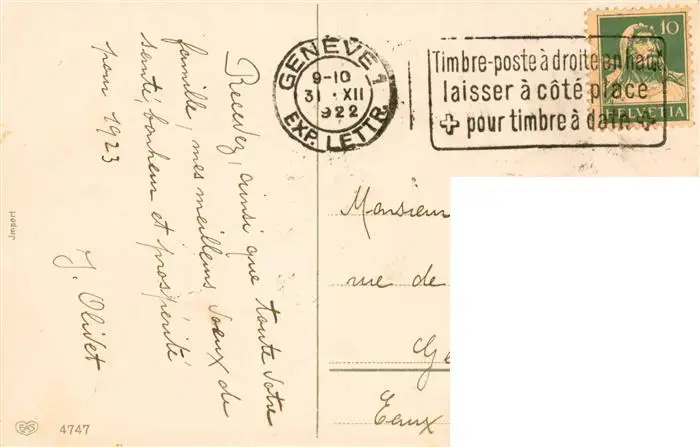 Recevez, ainsi que toute votre
famille, mes meilleurs voeux de
santé, bonheur et prospérité
pour 1923
J. Olivet
GENÈVE 1
9-10
31 · XII
922
EXP. LETTR.
Timbre-poste à droite en haut
laisser à côté place
pour timbre à date
10
HELVETIA
Monsieur
rue de
Ge
Eaux
Import
EAS
4747